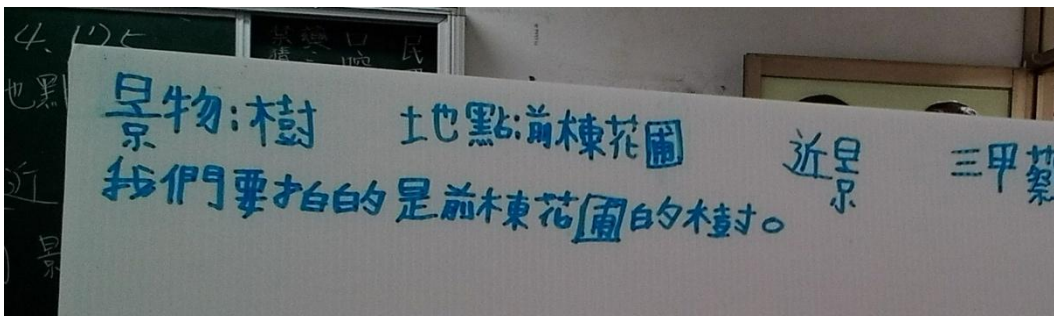 景物:樹 地點:前棟花圃 近景 三甲蔡
我們要拍的是前棟花圃的樹。
4.
也點
近
景